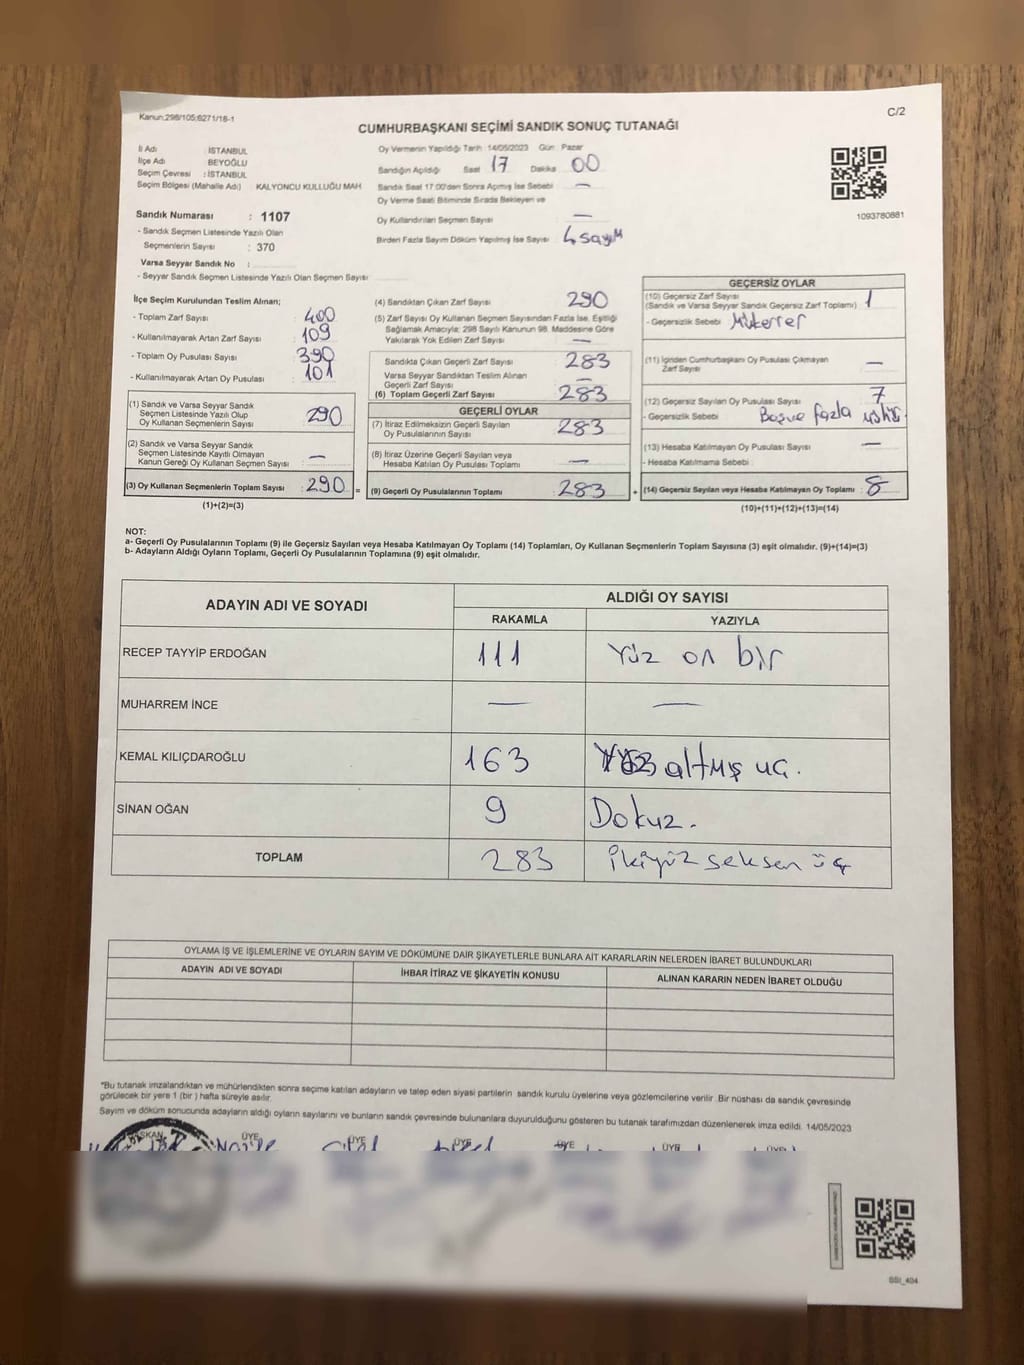 Kanun:298/105;6271/18-1
C/2
CUMHURBAŞKANI SEÇİMİ SANDIK SONUÇ TUTANAĞI
İl Adı : İSTANBUL
İlçe Adı BEYOĞLU
Seçim Çevresi : İSTANBUL
Seçim Bölgesi (Mahalle Adı) KALYONCU KULLUĞU MAH
Sandık Numarası : 1107
- Sandık Seçmen Listesinde Yazılı Olan
Seçmenlerin Sayısı : 370
Varsa Seyyar Sandık No :
- Seyyar Sandık Seçmen Listesinde Yazılı Olan Seçmen Sayısı
Oy Vermenin Yapıldığı Tarih 14/05/2023 Gün Pazar
Sandığın Açıldığı Saat 17 Dakika 00
Sandık Saat 17:00'den Sonra Açımış İse Sebebi —
Oy Verme Saati Bitiminde Sırada Bekleyen ve
Oy Kullandırılan Seçmen Sayısı —
Birden Fazla Sayım Döküm Yapılmış İse Sayısı : 4 sayım
1093780881
İlçe Seçim Kurulundan Teslim Alınan;
- Toplam Zarf Sayısı : 400
- Kullanılmayarak Artan Zarf Sayısı : 109
- Toplam Oy Pusulası Sayısı : 390
- Kullanılmayarak Artan Oy Pusulası : 101
(1) Sandık ve Varsa Seyyar Sandık
Seçmen Listesinde Yazılı Olup
Oy Kullanan Seçmenlerin Sayısı : 290
(2) Sandık ve Varsa Seyyar Sandık
Seçmen Listesinde Kayıtlı Olmayan
Kanun Gereği Oy Kullanan Seçmen Sayısı : —
(3) Oy Kullanan Seçmenlerin Toplam Sayısı : 290 =
(1)+(2)=(3)
(4) Sandıktan Çıkan Zarf Sayısı 290
(5) Zarf Sayısı Oy Kullanan Seçmen Sayısından Fazla İse, Eşitliği
Sağlamak Amacıyla; 298 Sayılı Kanunun 98. Maddesine Göre
Yakılarak Yok Edilen Zarf Sayısı —
Sandıkta Çıkan Geçerli Zarf Sayısı 283
Varsa Seyyar Sandıktan Teslim Alınan
Geçerli Zarf Sayısı —
(6) Toplam Geçerli Zarf Sayısı 283
GEÇERLİ OYLAR
(7) İtiraz Edilmeksizin Geçerli Sayılan
Oy Pusulalarının Sayısı 283
(8) İtiraz Üzerine Geçerli Sayılan veya
Hesaba Katılan Oy Pusulası Toplamı —
(9) Geçerli Oy Pusulalarının Toplamı 283 +
GEÇERSİZ OYLAR
(10) Geçersiz Zarf Sayısı
(Sandık ve Varsa Seyyar Sandık Geçersiz Zarf Toplamı) : 1
- Geçersizlik Sebebi : Mükerrer
(11) İçinden Cumhurbaşkanı Oy Pusulası Çıkmayan
Zarf Sayısı : —
(12) Geçersiz Sayılan Oy Pusulası Sayısı : 7
- Geçersizlik Sebebi : Boş ve fazla
(13) Hesaba Katılmayan Oy Pusulası Sayısı : —
- Hesaba Katılmama Sebebi :
(14) Geçersiz Sayılan veya Hesaba Katılmayan Oy Toplamı : 8
(10)+(11)+(12)+(13)=(14)
NOT:
a- Geçerli Oy Pusulalarının Toplamı (9) ile Geçersiz Sayılan veya Hesaba Katılmayan Oy Toplamı (14) Toplamları, Oy Kullanan Seçmenlerin Toplam Sayısına (3) eşit olmalıdır. (9)+(14)=(3)
b- Adayların Aldığı Oyların Toplamı, Geçerli Oy Pusulalarının Toplamına (9) eşit olmalıdır.
ADAYIN ADI VE SOYADI ALDIĞI OY SAYISI
RAKAMLA YAZIYLA
RECEP TAYYİP ERDOĞAN 111 Yüz on bir
MUHARREM İNCE — —
KEMAL KILIÇDAROĞLU 163 Yüz altmış uç.
SİNAN OĞAN 9 Dokuz.
TOPLAM 283 ikiyüz seksen üç
OYLAMA İŞ VE İŞLEMLERİNE VE OYLARIN SAYIM VE DÖKÜMÜNE DAİR ŞİKAYETLERLE BUNLARA AİT KARARLARIN NELERDEN İBARET BULUNDUKLARI
ADAYIN ADI VE SOYADI İHBAR İTİRAZ VE ŞİKAYETİN KONUSU ALINAN KARARIN NEDEN İBARET OLDUĞU
*Bu tutanak imzalandıktan ve mühürlendikten sonra seçime katılan adayların ve talep eden siyasi partilerin sandık kurulu üyelerine veya gözlemcilerine verilir. Bir nüshası da sandık çevresinde
görülecek bir yere 1 (bir ) hafta süreyle asılır.
Sayım ve döküm sonucunda adayların aldığı oyların sayılarını ve bunların sandık çevresinde bulunanlara duyurulduğunu gösteren bu tutanak tarafımızdan düzenlenerek imza edildi. 14/05/2023
BAŞKAN ÜYE ÜYE ÜYE ÜYE ÜYE ÜYE